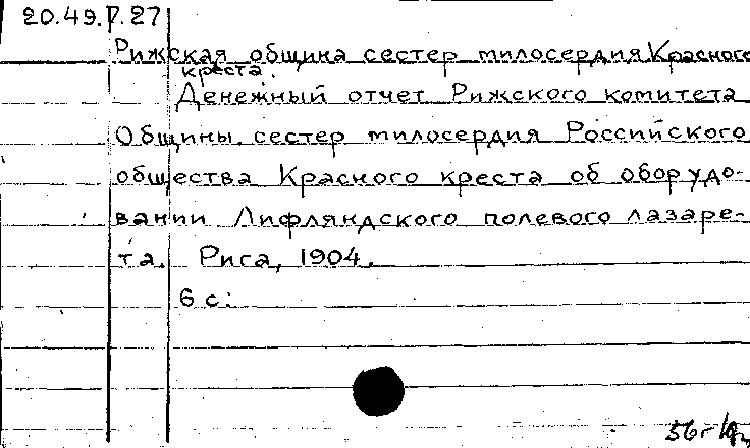 20.49.V.27
Рижская община сестер милосердия Красного
креста.
Денежный отчет Рижского комитета
Общины сестер милосердия Российского
общества Красного креста об оборудо-
вании Лифляндского полевого лазаре-
та. Рига, 1904.
6 с.